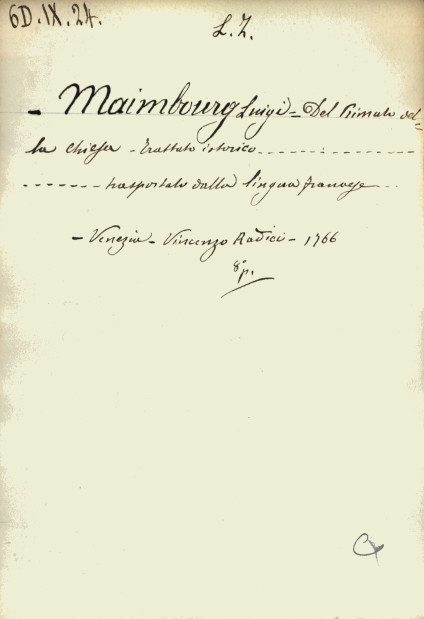 6D.IX.24.
L.Z.
- Maimbourg Luigi = Del Primato del=
la chiesa - trattato istorico - - - - - - - - - - - -
- - - - - - - trasportato dalla lingua francese - -
- Venezia - Vincenzo Radici - 1766
8° p.